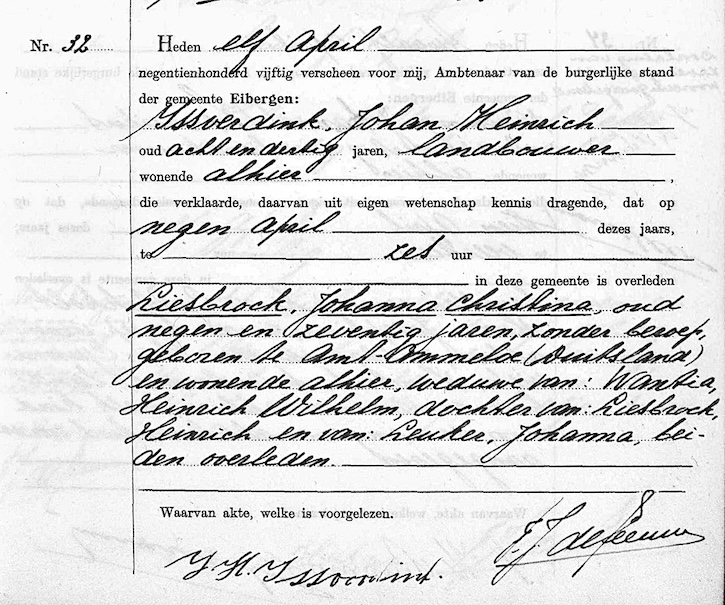 Nr. 32 Heden elf April
negentienhonderd vijftig verscheen voor mij, Ambtenaar van de burgerlijke stand
der gemeente Eibergen:
IJssverdink, Johan Heinrich
oud acht en dertig jaren, landbouwer
wonende alhier,
die verklaarde, daarvan uit eigen wetenschap kennis dragende, dat op
negen April dezes jaars,
te zes uur
in deze gemeente is overleden
Liesbrock, Johanna Christina, oud
negen en zeventig jaren, zonder beroep,
geboren te Amt-Ammeloe (Duitsland)
en wonende alhier, weduwe van: Wantia,
Heinrich Wilhelm, dochter van: Liesbrock,
Heinrich en van: Leuker, Johanna, bei-
den overleden.
Waarvan akte, welke is voorgelezen.